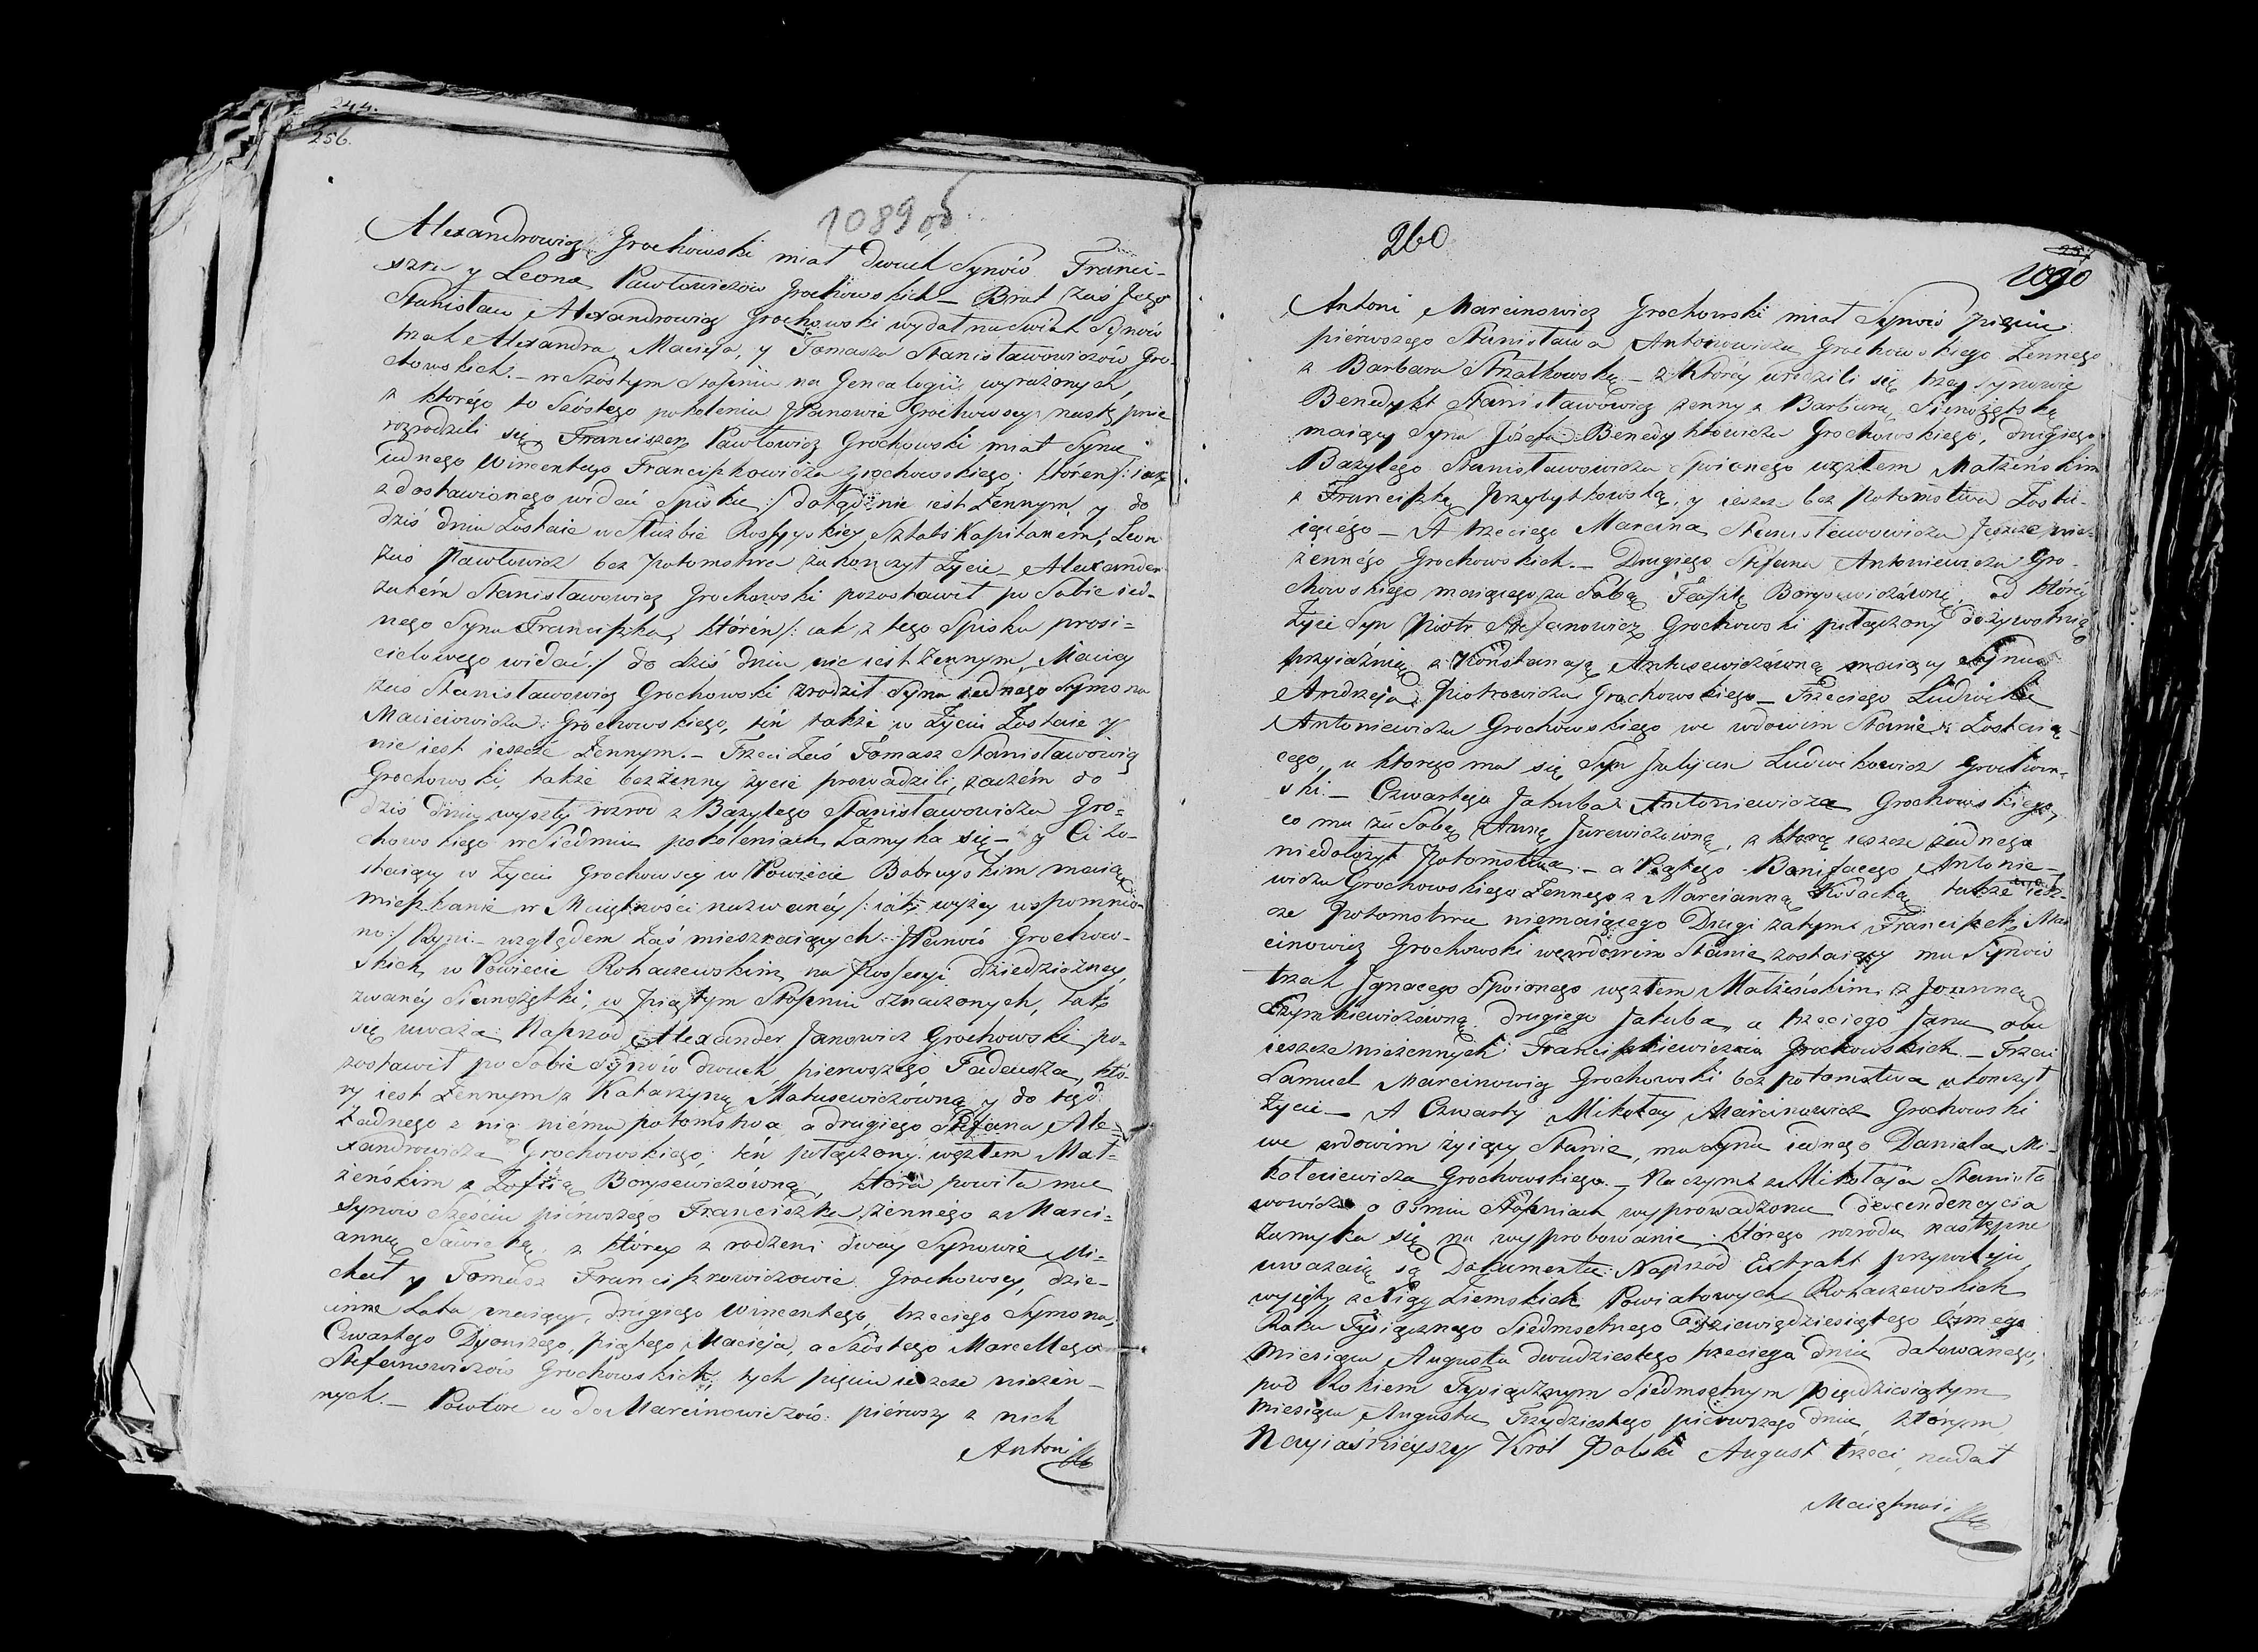 244.
256.
1089 об
Alexandrowicz Grochowski miał dwuch Synów Franci-
szka y Leona Pawłowiczów Grochowskich – Brat zaś Jego
Stanisław Alexandrowicz Grochowski wydał na Swiat Synów
trzech Alexandra, Macieja, y Tomasza Stanisławowiczów Gro-
chowskich. – w Szóstym Stopniu na Genealogii wyrażonych,
z którego to Szóstego pokolenia JPanowie Grochowscy następnie
rozrodzili się, Franciszek Pawłowicz Grochowski miał Syna
iednego Wincentego Franciszkowicza Grochowskiego, któren /: iak
z dostawionego widać Spisku :/ dotąd nie iest Żennym y do
dziś dnia Zostaie w Służbie Rossyyskiey Sztabs Kapitanem, Leon
zaś Pawłowicz bez Potomstwa zakonczył Życie – Alexander
zatém Stanisławowicz Grochowski pozostawił po Sobie ied-
nego Syna Franciszka, któren /: iak z tego Spisku prosi=
cielowego widać :/ do dziś dnia nie iest Żennym, Maciey
zaś Stanisławowicz Grochowski zrodził Syna iednego Symona
Macieiowicza Grochowskiego, ten także w Życiu Zostaie y
nie iest ieszcze Żennym. – Trzeci Zaś Tomasz Stanisławowicz
Grochowski, także bezżenny życie prowadzili, zaczém do
dziś dnia wyszły rozrod z Bazylego Stanisławowicza Gro=
chowskiego w Siedmiu pokoleniach Zamyka się – y Ci Zo-
staiący w Życiu Grochowscy w Powiecie Bobruyskim maią
mieszkanie w Maiętności nazwanéy /: iak wyżey wspomnio-
no :/ względem Zaś mieszkaiących JPanów Grochow-
skich w Powiecie Rohaczewskim na Possessyi dziedziczney,
zwanéy Sienożątki, w piątym Stopniu oznaczonych, tak
się uważa: Naprzod Alexander Janowicz Grochowski po-
zostawił po Sobie Synów dwuch, pierwszego Tadeusza, któ-
ry iest Żennym z Katarzyną Matusewiczówną y do tego
Żadnego z nią niema potomstwa, a drugiego Stefana Ale-
xandrowicza Grochowskiego, ten połączony węzłem Mał=
żeńskim z Zofią Borysewiczówną, która powiła mu
Synow Sześciu pierwszego Franciszka żennego z Marci=
anną Sawicką, z którey z rodzeni dway Synowie Mi=
chał y Tomasz Franciszkowiczowie Grochowscy, dzie-
cinne Lata maiący, drugiego Wincentego, trzeciego Symona,
Czwartego Dyonizego, piątego Macieja, a Szóstego Marcellego
Stefanowiczów Grochowskich tych pięciu ieszcze nieżen-
nych. – Powtore co do Marcinowiczów: piérwszy z nich
Antoni
260
257
1090
Antoni Marcinowicz Grochowski miał Synów pięciu
piérwszego Stanisława Antonowicza Grochowskiego Żennego
z Barbarą Strzałkowską – z któréy urodzili się trzey Synowie
Benedykt Stanisławowicz żenny z Barbarą Sienożęcką
maiący Syna Józefa Benedyktowicza Grochowskiego, drugiego
Bazylego Stanisławowicza Spoionego węzłem Małżeńskim
z Franciszką Przybytkowską, y ieszcze bez Potomstwa Zosta-
iącego – A trzeciego Marcina Stanisławowicza Jeszcze nie-
żennégo Grochowskich. – Drugiego Stefana Antoniewicza Gro-
chowskiego maiącego za Sobą Teofilę Borysewiczównę, od któréy
Życie Syn Piotr Stefanowicz Grochowski połączony dożywotnią
przyiaźnią z Konstancyą Antusewiczówną maiący Syna
Andrzeja Piotrowicza Grochowskiego – Trzeciego Ludwika
Antoniewicza Grochowskiego we wdowim Stanie Zostaią-
cego, u ktorego ma się Syn Julijan Ludwikowicz Grochow-
ski – Czwartego Jakuba Antoniewicza Grochowskiego,
co ma za Sobą Annę Jurewiczównę, z którą ieszcze żadnego
niedołożył Potomstwa – a Piątego Bonifacego Antonie-
wicza Grochowskiego Żennego z Marcianną Kłodacką także iesz-
cze Potomstwa niemaiącego Drugi zatym Franciszek Mar
cinowicz Grochowski we wdowim Stanie zostaiący ma Synów
trzech Jgnacego Spoionego węzłem Małżeńskim z Joanną
Szymkiewiczówną, drugiego Jakuba, a trzeciego Jana obu
ieszcze nieżennych Franciszkiewiczów Grochowskich – Trzeci
Samuel Marcinowicz Grochowski bez potomstwa ukończył
Życie – A Czwarty Mikołay Marcinowicz Grochowski
we wdowim żyiący Stanie, ma Syna iednego Daniela Mi-
kołaiewicza Grochowskiego. – Na czym z Mikołaja Stanisła
wowicza o ośmiu Stopniach wyprowadzona descendencyia
Zamyka się na wyprobowanie którego rozrodu następne
uważaią są Dokumenta: Naprzód Extrakt przywileju
wyięty z Xiąg Ziemskich Powiatowych Rohaczewskich
Roku Tysiącznego Siedmsetnego Dziewięćdziesiątego Ósmego
Miesiąca Augusta dwudziestego trzeciego dnia datowanego,
pod Rokiem Tysiącznym Siedmsetnym pięćdziesiątym
Miesiąca Augusta Trzydziestego pierwszego dnia, którym
Nayiaśnieyszy Król Polski August trzeci nadał
Maiętnoś.